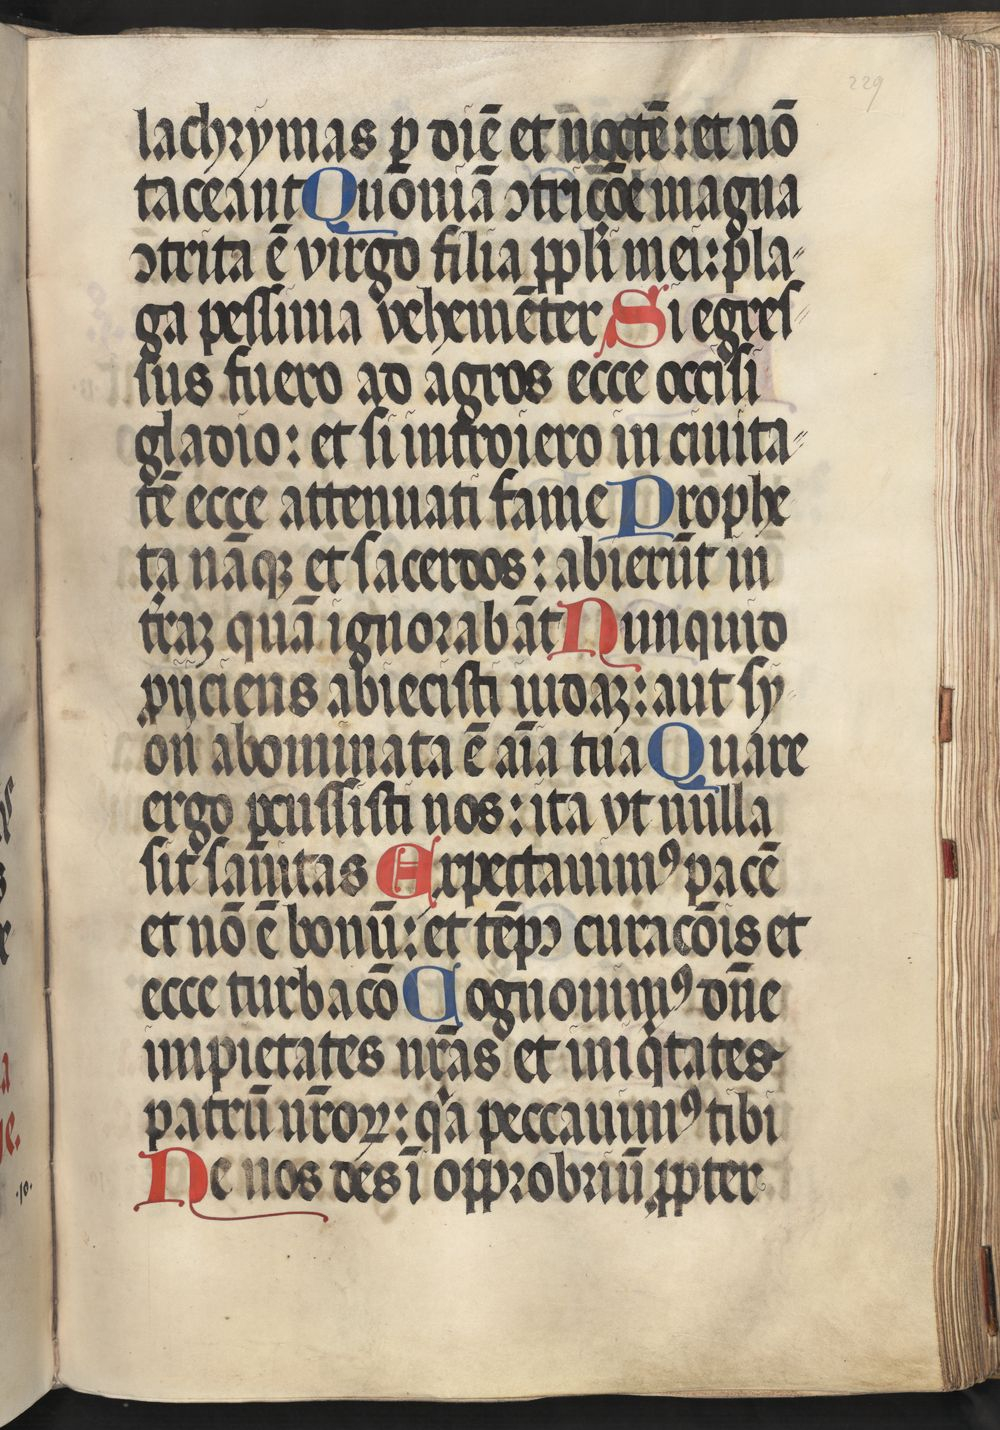 229
lachrymas ꝑ diē et noctē: et nō
taceant Quoniā ɔtricōe magna
ɔtrita ē virgo filia ppli mei: pla⸗
ga pessima vehemēter Si egres⸗
sus fuero ad agros ecce occisi
gladio: et si introiero in ciuita⸗
tē ecce attenuati fame Prophe
ta nāqꝫ et sacerdos: abierūt in
t̄raꝫ quā ignorabāt Nunquid
ꝓijciens abiecisti iudaꝫ: aut sy⸗
on abominata ē aīa tua Quare
ergo ꝑcussisti nos: ita vt nulla
sit sanitas Expectauimꝰ pacē
et nō ē bonū: et tēpꝰ curacōis et
ecce turbacō Cognouimꝰ dn̄e
impietates nr̄as et iniqͥtates
patrū nr̄oꝝ: qͥa peccauimꝰ tibi
Ne nos des ī opprobriū ꝓpter